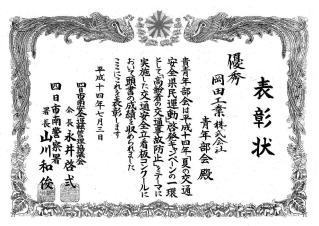 表彰状
優秀
岡田工業株式会社
青年部会 殿
貴青年部会は平成十四年「夏の交通
安全県民運動」啓発キャンペーンの一環
として、高齢者の交通事故防止をテーマに
実施した交通安全立看板コンクールに
おいて頭書の成績を収められました
ここにこれを表彰します
平成十四年七月三日
会長 永井啓弐
四日市南警察署
署長 山川和俊